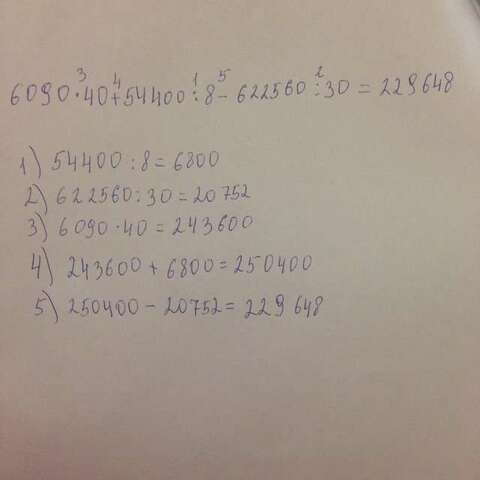 6090 · 40 + 54400 : 8 - 622560 : 30 = 229648
1) 54400 : 8 = 6800
2) 622560 : 30 = 20752
3) 6090 · 40 = 243600
4) 243600 + 6800 = 250400
5) 250400 - 20752 = 229648